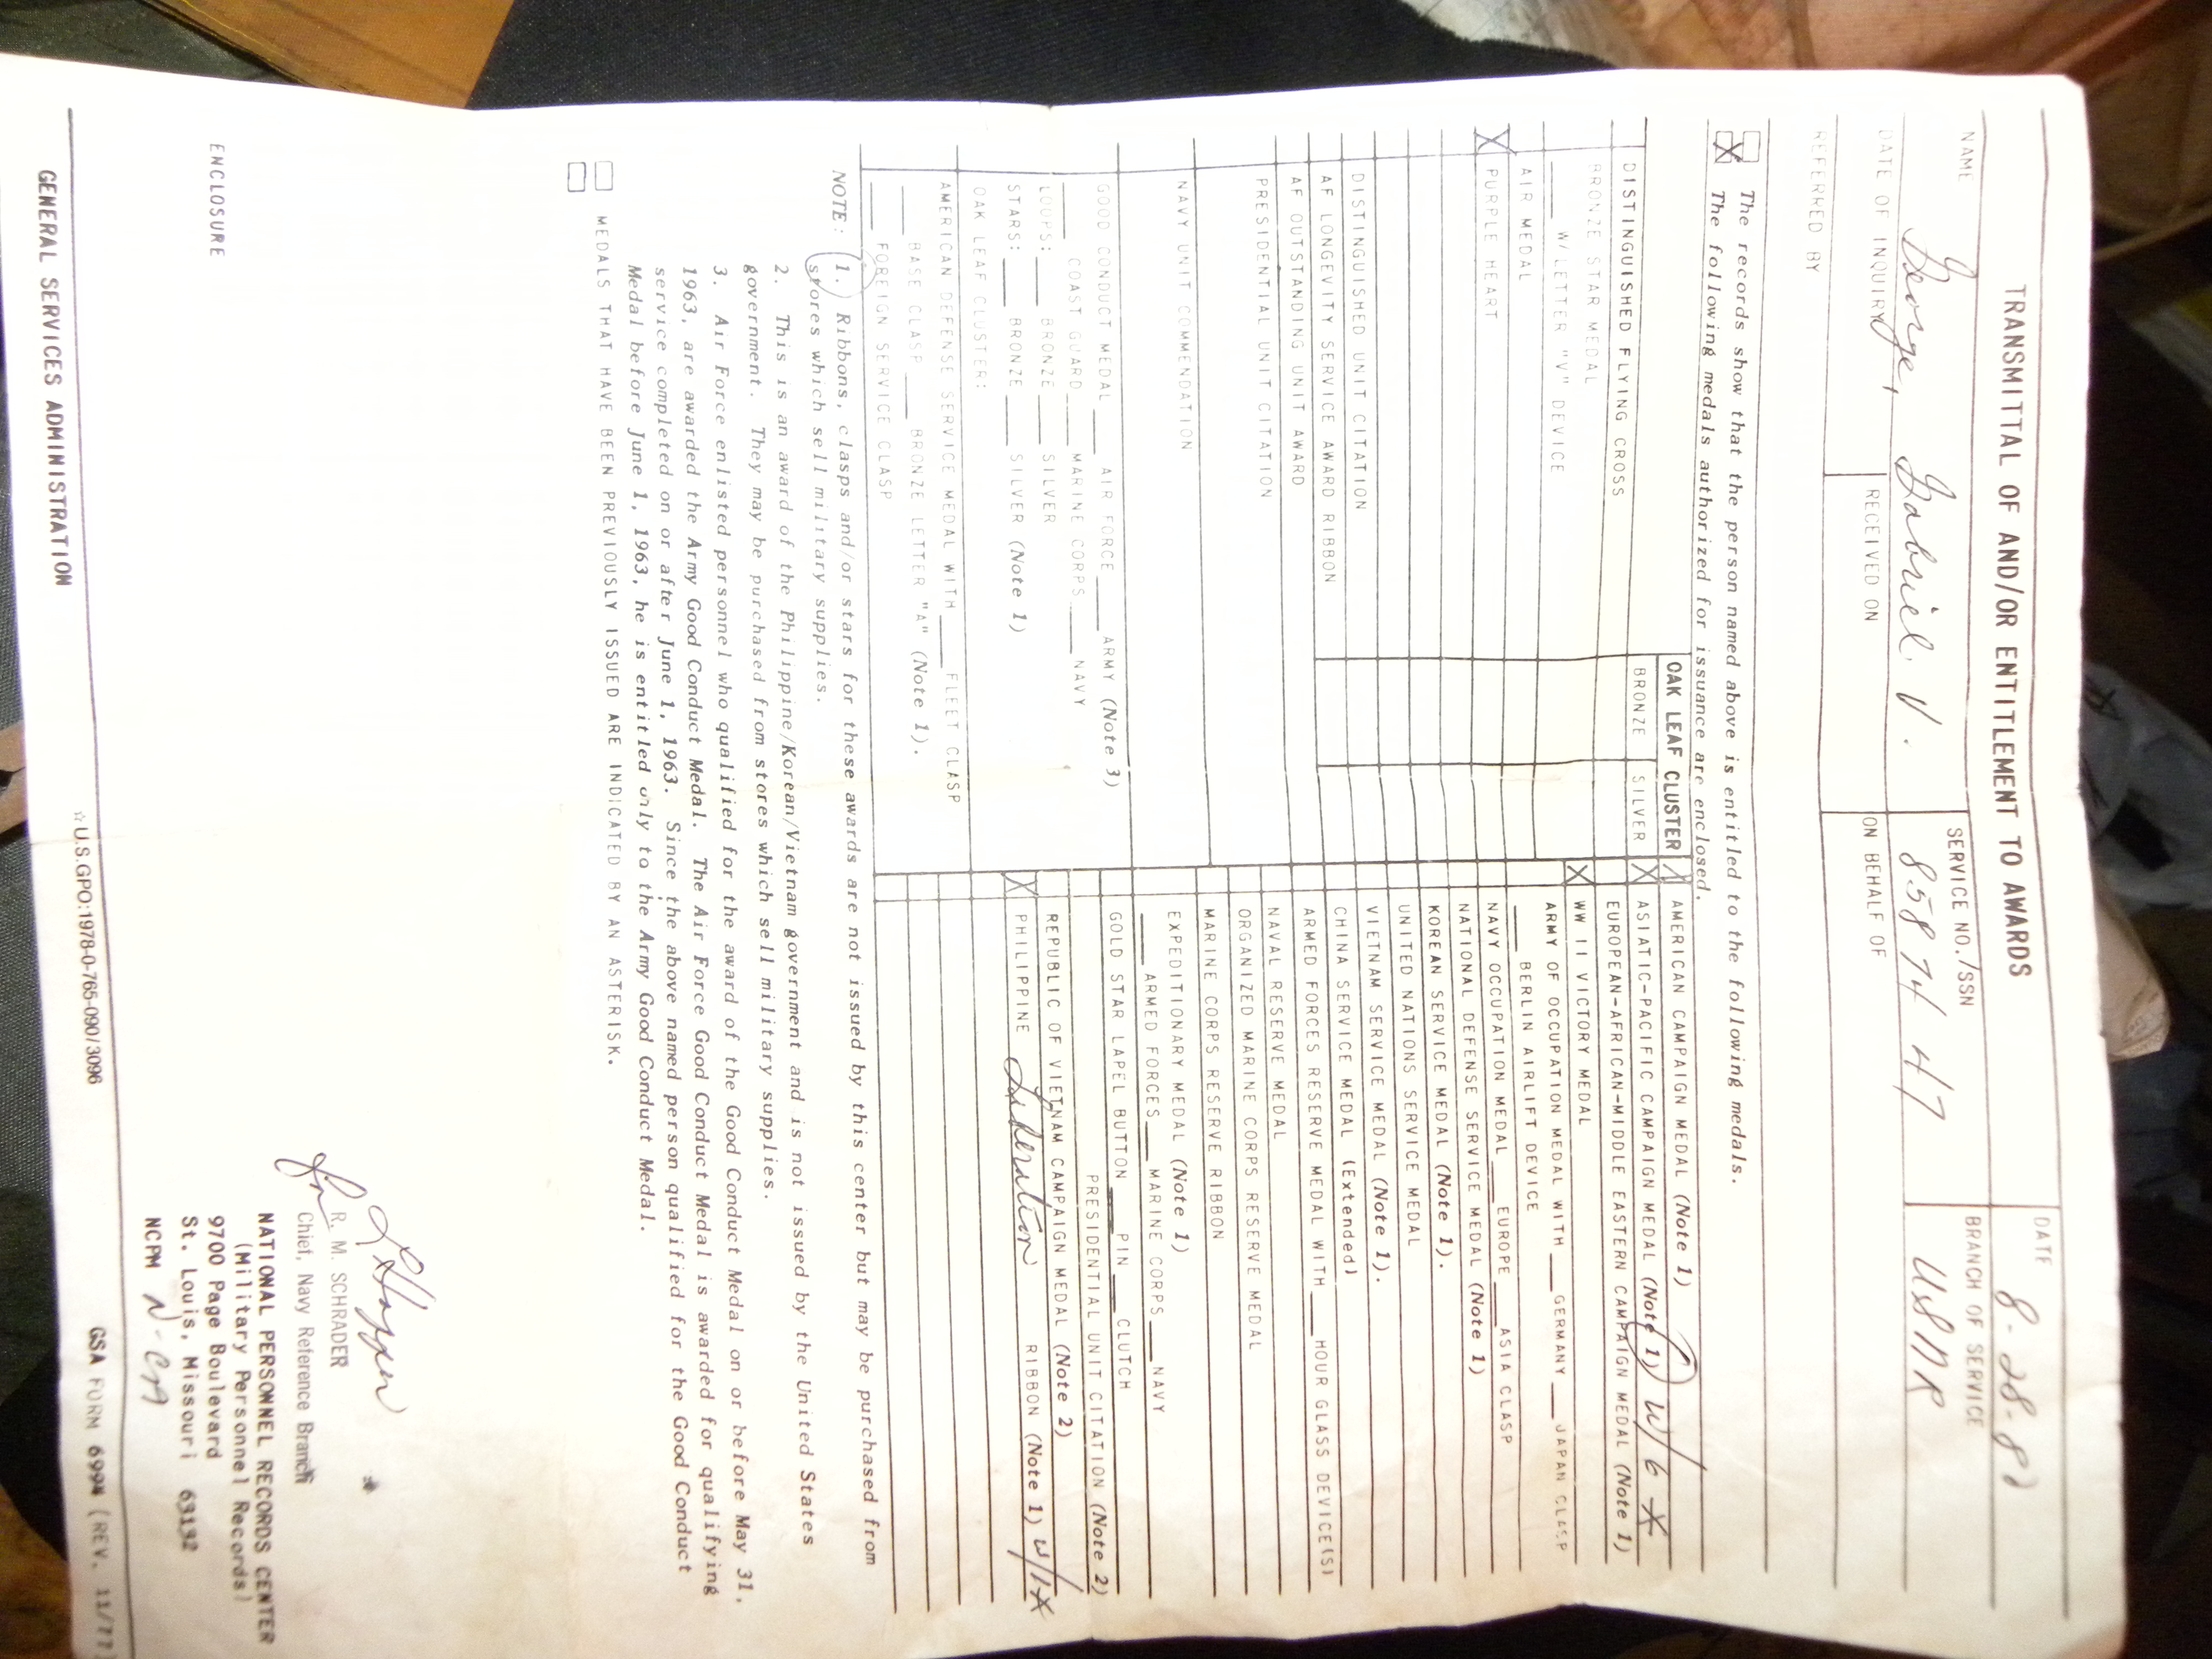 TRANSMITTAL OF AND/OR ENTITLEMENT TO AWARDS
DATE
8-28-8
NAME
George, Gabriel. V.
SERVICE NO./SSN
858 74 47
BRANCH OF SERVICE
USNR
DATE OF INQUIRY
RECEIVED ON
ON BEHALF OF
REFERRED BY
The records show that the person named above is entitled to the following medals.
X The following medals authorized for issuance are enclosed.
OAK LEAF CLUSTER
BRONZE SILVER
DISTINGUISHED FLYING CROSS
BRONZE STAR MEDAL
___ W/LETTER "V" DEVICE
AIR MEDAL
X PURPLE HEART
DISTINGUISHED UNIT CITATION
AF LONGEVITY SERVICE AWARD RIBBON
AF OUTSTANDING UNIT AWARD
PRESIDENTIAL UNIT CITATION
NAVY UNIT COMMENDATION
GOOD CONDUCT MEDAL ___ AIR FORCE ___ ARMY (Note 3)
___ COAST GUARD ___ MARINE CORPS ___ NAVY
LOUPS: ___ BRONZE ___ SILVER
STARS: ___ BRONZE ___ SILVER (Note 1)
OAK LEAF CLUSTER:
AMERICAN DEFENSE SERVICE MEDAL WITH ___ FLEET CLASP
___ BASE CLASP ___ BRONZE LETTER "A" (Note 1).
___ FOREIGN SERVICE CLASP
X AMERICAN CAMPAIGN MEDAL (Note 1)
X ASIATIC-PACIFIC CAMPAIGN MEDAL (Note 1) W/ 6 *
EUROPEAN-AFRICAN-MIDDLE EASTERN CAMPAIGN MEDAL (Note 1)
X WW II VICTORY MEDAL
ARMY OF OCCUPATION MEDAL WITH ___ GERMANY ___ JAPAN CLASP
___ BERLIN AIRLIFT DEVICE
NAVY OCCUPATION MEDAL ___ EUROPE ___ ASIA CLASP
NATIONAL DEFENSE SERVICE MEDAL (Note 1)
KOREAN SERVICE MEDAL (Note 1).
UNITED NATIONS SERVICE MEDAL
VIETNAM SERVICE MEDAL (Note 1).
CHINA SERVICE MEDAL (Extended)
ARMED FORCES RESERVE MEDAL WITH ___ HOUR GLASS DEVICE(S)
NAVAL RESERVE MEDAL
ORGANIZED MARINE CORPS RESERVE MEDAL
MARINE CORPS RESERVE RIBBON
EXPEDITIONARY MEDAL (Note 1)
___ ARMED FORCES ___ MARINE CORPS ___ NAVY
GOLD STAR LAPEL BUTTON ___ PIN ___ CLUTCH
PRESIDENTIAL UNIT CITATION (Note 2)
REPUBLIC OF VIETNAM CAMPAIGN MEDAL (Note 2)
X PHILIPPINE Liberation RIBBON (Note 1) W/1*
NOTE: 1. Ribbons, clasps and/or stars for these awards are not issued by this center but may be purchased from
stores which sell military supplies.
2. This is an award of the Philippine/Korean/Vietnam government and is not issued by the United States
government. They may be purchased from stores which sell military supplies.
3. Air Force enlisted personnel who qualified for the award of the Good Conduct Medal on or before May 31,
1963, are awarded the Army Good Conduct Medal. The Air Force Good Conduct Medal is awarded for qualifying
service completed on or after June 1, 1963. Since the above named person qualified for the Good Conduct
Medal before June 1, 1963, he is entitled only to the Army Good Conduct Medal.
MEDALS THAT HAVE BEEN PREVIOUSLY ISSUED ARE INDICATED BY AN ASTERISK.
R. M. SCHRADER
Chief, Navy Reference Branch
NATIONAL PERSONNEL RECORDS CENTER
(Military Personnel Records)
9700 Page Boulevard
St. Louis, Missouri 63132
NCPM
ENCLOSURE
GENERAL SERVICES ADMINISTRATION
☆U.S.GPO:1978-0-765-090/3096
GSA FORM 6994 (REV. 11/77)